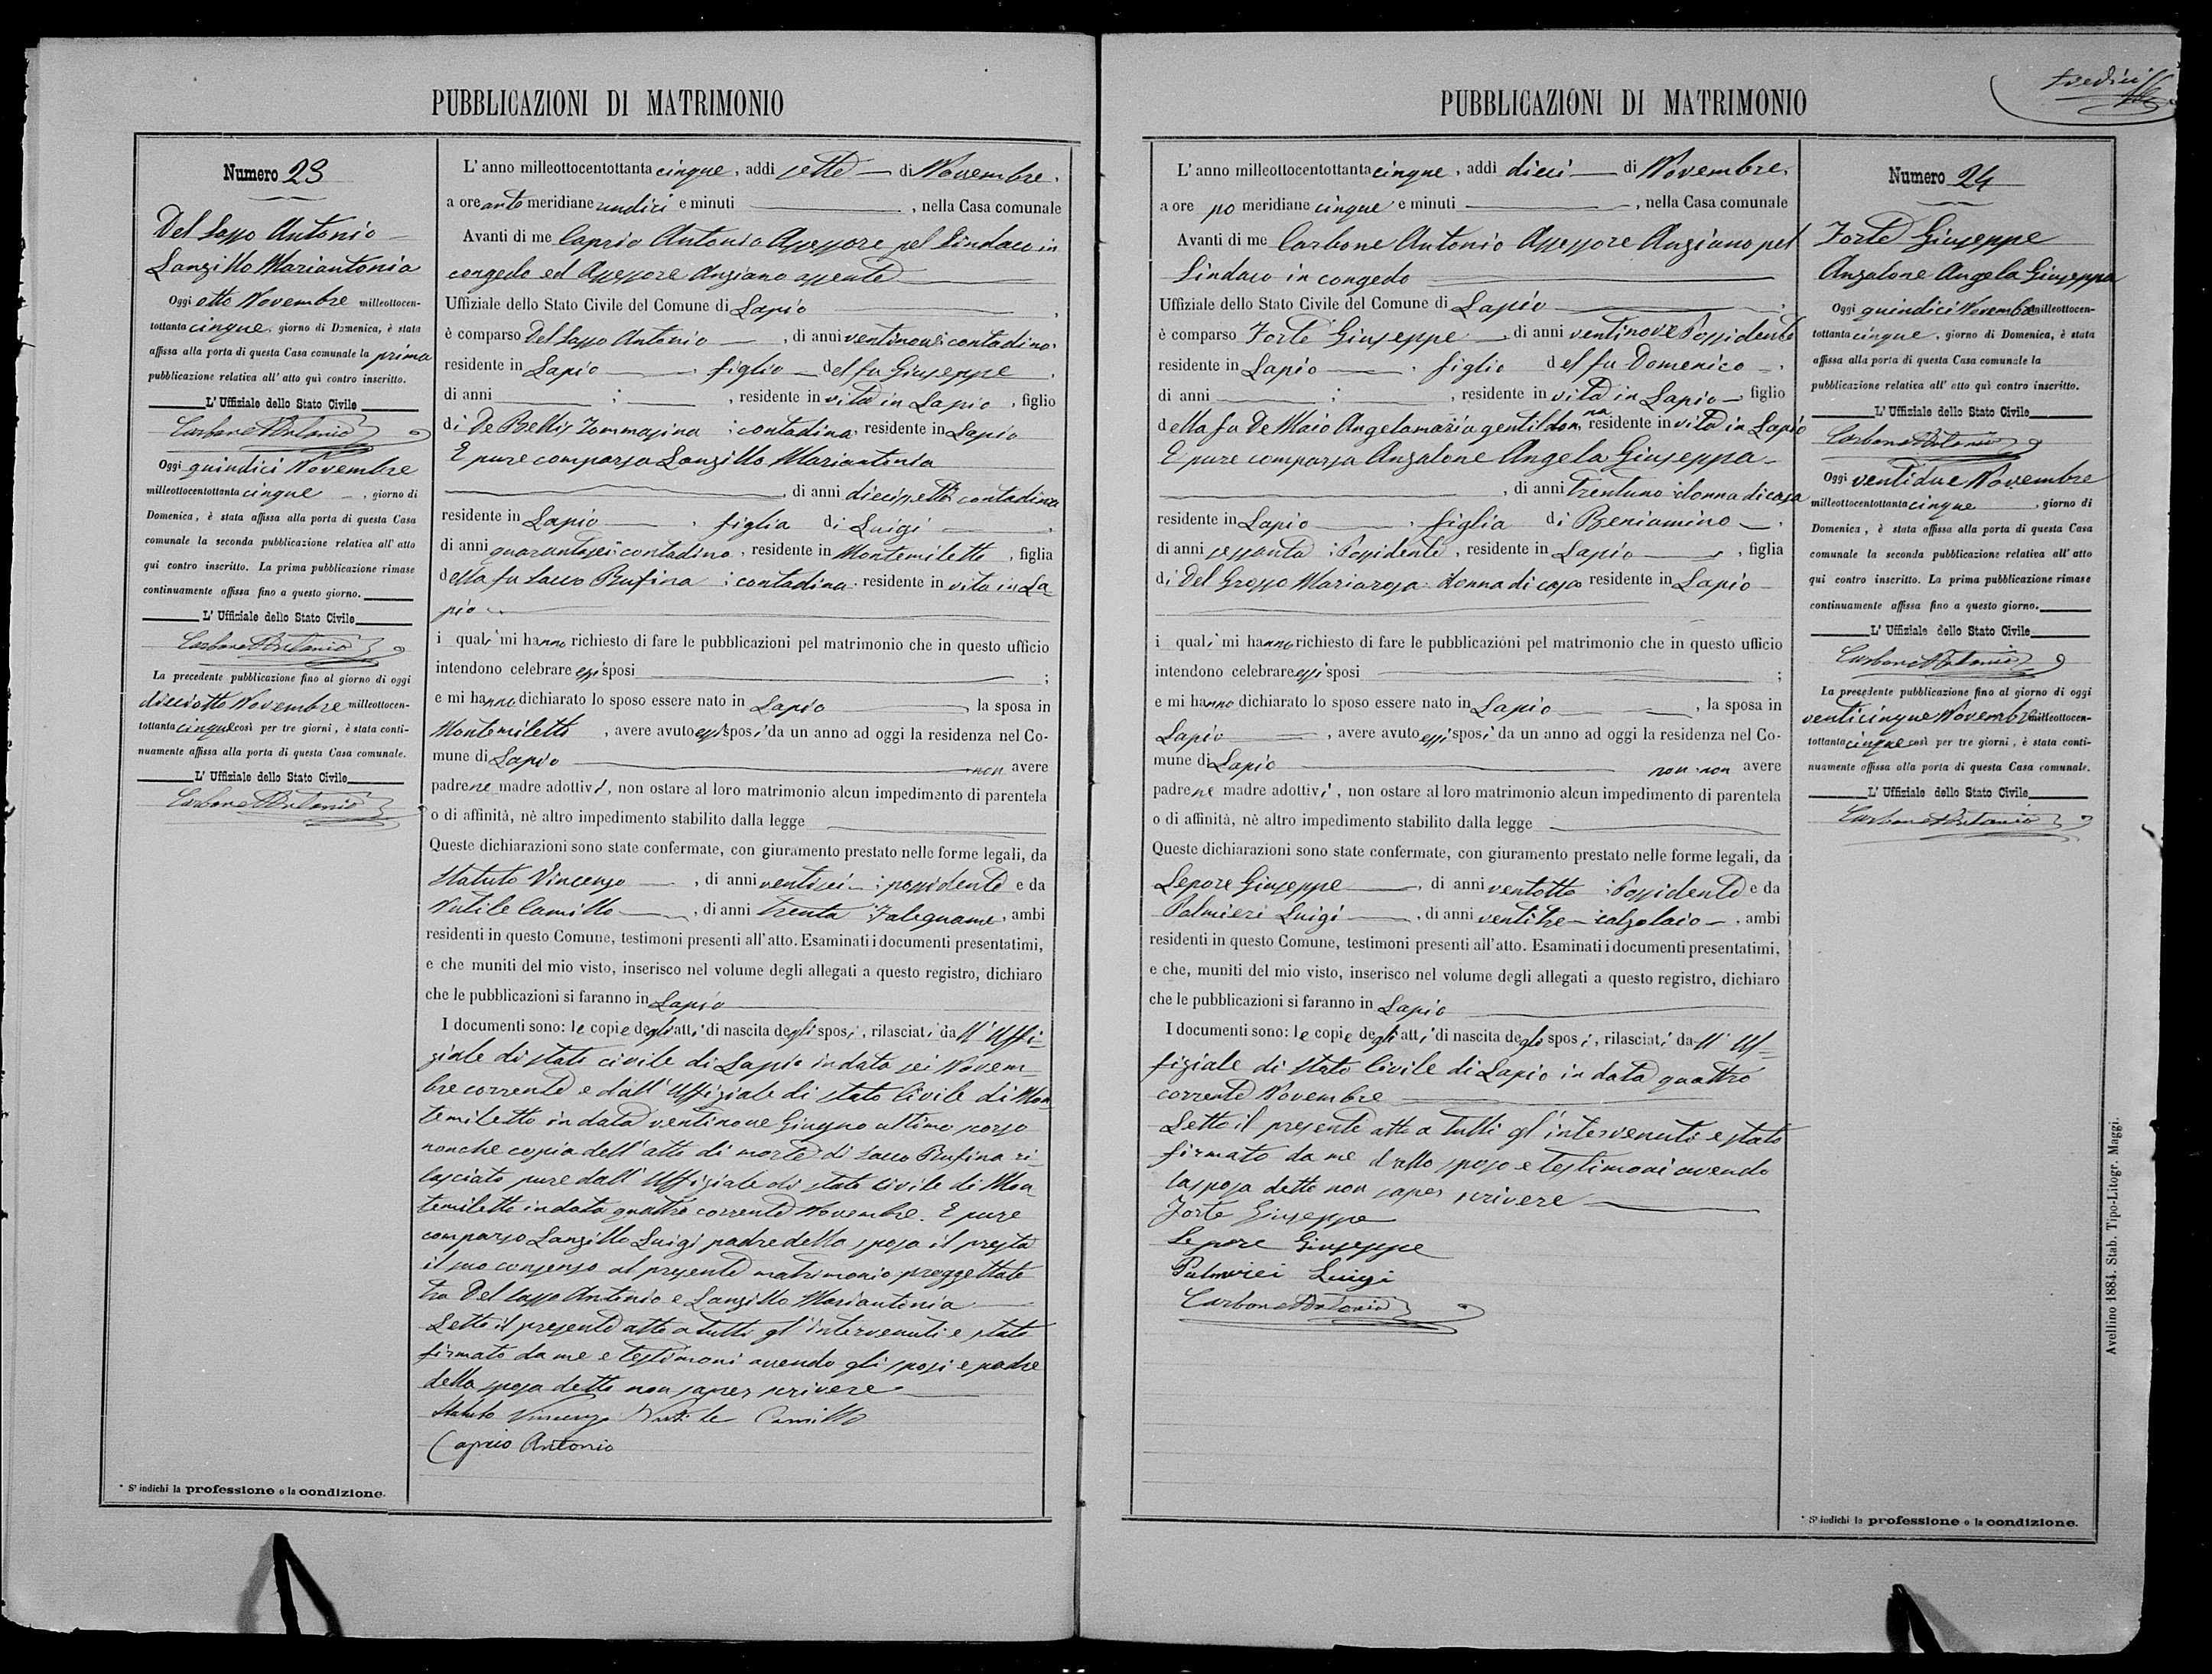 PUBBLICAZIONI DI MATRIMONIO
Numero 23
Del Sasso Antonio
Lanzillo Mariantonia
Oggi otto Novembre milleottocen-
tottanta cinque, giorno di Domenica, è stata
affissa alla porta di questa Casa comunale la prima
pubblicazione relativa all' atto quì contro inscritto.
L' Uffiziale dello Stato Civile
Carbone Antonio
Oggi quindici Novembre
milleottocentottanta cinque, giorno di
Domenica, è stata affissa alla porta di questa Casa
comunale la seconda pubblicazione relativa all' atto
qui contro inscritto. La prima pubblicazione rimase
continuamente affissa fino a questo giorno.
L' Uffiziale dello Stato Civile
Carbone Antonio
La precedente pubblicazione fino al giorno di oggi
dieciotto Novembre milleottocen-
tottanta cinque così per tre giorni, è stata conti-
nuamente affissa alla porta di questa Casa comunale.
L' Uffiziale dello Stato Civile
Carbone Antonio
* S' indichi la professione o la condizione.
L' anno milleottocentottanta cinque, addì sette di Novembre,
a ore ante meridiane undici e minuti , nella Casa comunale
Avanti di me Caprio Antonio Assessore pel Sindaco in
congedo ed Assessore Anziano assente
Uffiziale dello Stato Civile del Comune di Lapio ,
è comparso Del Sasso Antonio , di anni ventinove: contadino,
residente in Lapio , figlio del fu Giuseppe ,
di anni ; , residente in vita in Lapio , figlio
di De Bellis Tommasina ; contadina, residente in Lapio
E pure comparsa Lanzillo Mariantonia
, di anni diecissette contadina
residente in Lapio , figlia di Luigi ,
di anni quarantasei: contadino, residente in Montemiletto, figlia
della fu Sacco Rufina ; contadina, residente in vita in La-
pio
i quali mi hanno richiesto di fare le pubblicazioni pel matrimonio che in questo ufficio
intendono celebrare essi sposi ;
e mi hanno dichiarato lo sposo essere nato in Lapio , la sposa in
Montemiletto , avere avuto essi sposi da un anno ad oggi la residenza nel Co-
mune di Lapio non avere
padre ne madre adottivi, non ostare al loro matrimonio alcun impedimento di parentela
o di affinità, nè altro impedimento stabilito dalla legge
Queste dichiarazioni sono state confermate, con giuramento prestato nelle forme legali, da
Statuto Vincenzo , di anni ventisei ; possidente e da
Nutile Camillo , di anni trenta ; Falegname, ambi
residenti in questo Comune, testimoni presenti all' atto. Esaminati i documenti presentatimi,
e che muniti del mio visto, inserisco nel volume degli allegati a questo registro, dichiaro
che le pubblicazioni si faranno in Lapio
I documenti sono: le copie degli atti di nascita degli sposi, rilasciati dall' Uffi-
ziale di stato civile di Lapio in data sei Novem-
bre corrente e dall' Uffiziale di stato Civile di Mon
temiletto in data ventinove Giugno ultimo scorso
nonche copia dell' atto di morte di Sacco Rufina ri-
lasciato pure dall' Uffiziale di stato Civile di Mon
temiletto in data quattro corrente Novembre. E pure
comparso Lanzillo Luigi padre della sposa il presta
il suo consenso al presente matrimonio proggettato
tra Del Sasso Antonio e Lanzillo Mariantonia
Letto il presente atto a tutti gl' intervenuti e stato
firmato da me e testimoni avendo gli sposi e padre
della sposa detto non saper scrivere
Statuto Vincenzo Nutile Camillo
Caprio Antonio
PUBBLICAZIONI DI MATRIMONIO
tredici
L' anno milleottocentottanta cinque, addì dieci di Novembre,
a ore po meridiane cinque e minuti , nella Casa comunale
Avanti di me Carbone Antonio Assessore Anziano pel
Sindaco in congedo
Uffiziale dello Stato Civile del Comune di Lapio ,
è comparso Forte Giuseppe , di anni ventinove Possidente
residente in Lapio , figlio del fu Domenico ,
di anni ; , residente in vita in Lapio , figlio
della fu De Maio Angelamaria gentildonna residente in vita in Lapio
E pure comparsa Anzalone Angela Giuseppa
, di anni trentuno: donna di casa
residente in Lapio , figlia di Beniamino ,
di anni sessanta ; Possidente, residente in Lapio , figlia
di Del Grosso Mariarosa: donna di casa residente in Lapio
i quali mi hanno richiesto di fare le pubblicazioni pel matrimonio che in questo ufficio
intendono celebrare essi sposi ;
e mi hanno dichiarato lo sposo essere nato in Lapio , la sposa in
Lapio , avere avuto essi sposi da un anno ad oggi la residenza nel Co-
mune di Lapio non non avere
padre ne madre adottivi, non ostare al loro matrimonio alcun impedimento di parentela
o di affinità, nè altro impedimento stabilito dalla legge
Queste dichiarazioni sono state confermate, con giuramento prestato nelle forme legali, da
Lepore Giuseppe , di anni ventotto ; Possidente e da
Palmieri Luigi , di anni ventitre calzolaio , ambi
residenti in questo Comune, testimoni presenti all' atto. Esaminati i documenti presentatimi,
e che, muniti del mio visto, inserisco nel volume degli allegati a questo registro, dichiaro
che le pubblicazioni si faranno in Lapio
I documenti sono: le copie degli atti di nascita degli sposi, rilasciati dall' Uf-
fiziale di Stato Civile di Lapio in data quattro
corrente Novembre
Letto il presente atto a tutti gl' intervenuti e stato
firmato da me dallo sposo e testimoni avendo
la sposa detto non saper scrivere
Forte Giuseppe
Lepore Giuseppe
Palmieri Luigi
Carbone Antonio
Numero 24
Forte Giuseppe
Anzalone Angela Giuseppa
Oggi quindici Novembre milleottocen-
tottanta cinque, giorno di Domenica, è stata
affissa alla porta di questa Casa comunale la
pubblicazione relativa all' atto quì contro inscritto.
L' Uffiziale dello Stato Civile
Carbone Antonio
Oggi ventidue Novembre
milleottocentottanta cinque , giorno di
Domenica, è stata affissa alla porta di questa Casa
comunale la seconda pubblicazione relativa all' atto
qui contro inscritto. La prima pubblicazione rimase
continuamente affissa fino a questo giorno.
L' Uffiziale dello Stato Civile
Carbone Antonio
La precedente pubblicazione fino al giorno di oggi
venticinque Novembre milleottocen-
tottanta cinque così per tre giorni, è stata conti-
nuamente affissa alla porta di questa Casa comunale.
L' Uffiziale dello Stato Civile
Carbone Antonio
* S' indichi la professione o la condizione.
Avellino 1884. Stab. Tipo-Litogr. Maggi.